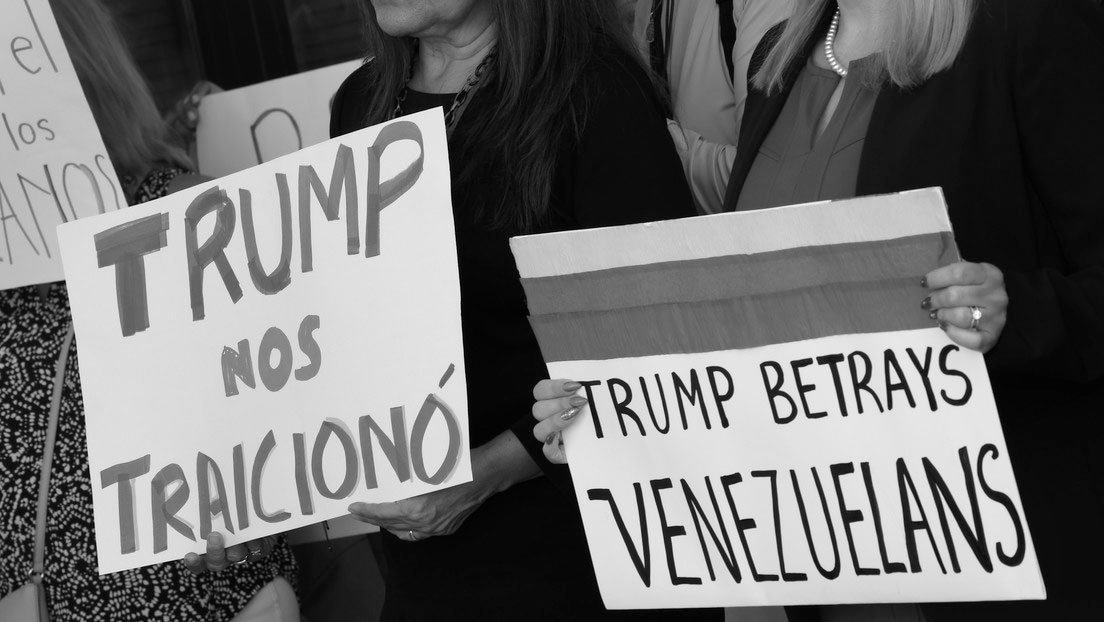 el
los
TRUMP
NOS
TRAICIONÓ
TRUMP BETRAYS
VENEZUELANS